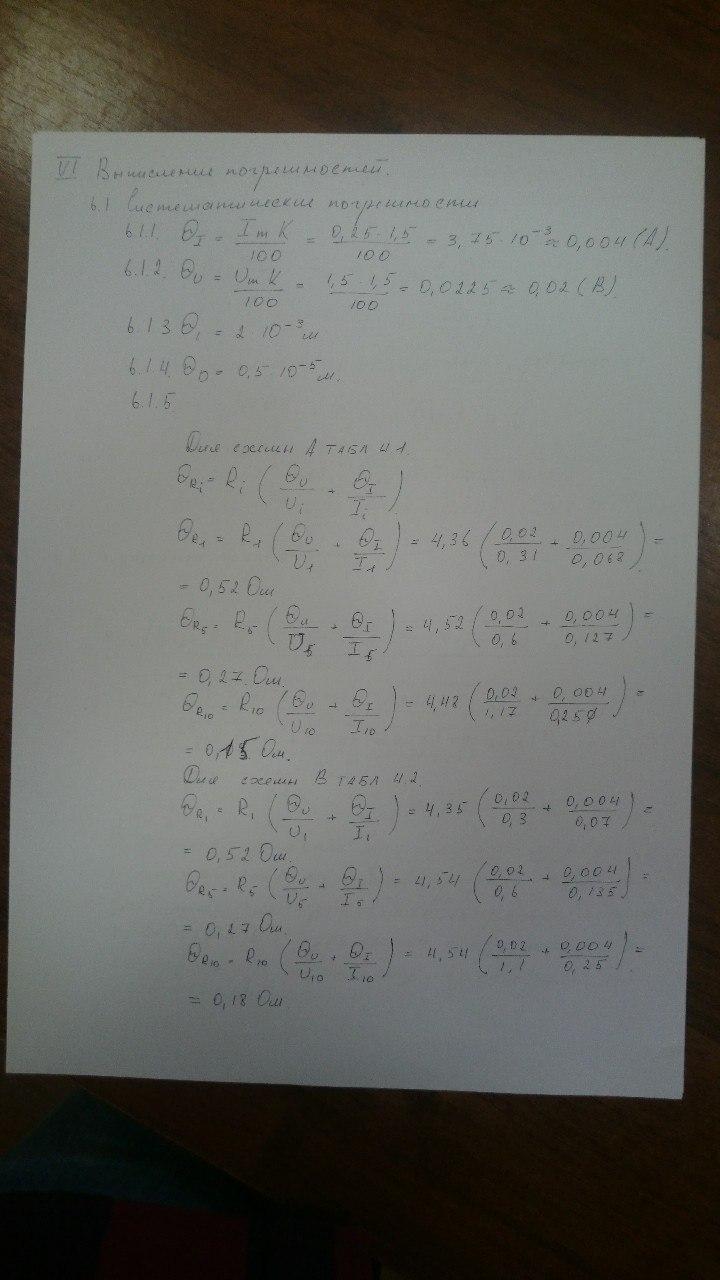 VI Вычисление погрешностей.
6.1 Систематические погрешности
6.1.1. Θ_I = I_m K / 100 = 0,25 · 1,5 / 100 = 3,75 · 10^-3 ≈ 0,004 (А).
6.1.2. Θ_U = U_m K / 100 = 1,5 · 1,5 / 100 = 0,0225 ≈ 0,02 (В)
6.1.3 Θ_l = 2 · 10^-3 м
6.1.4. Θ_D = 0,5 · 10^-5 м.
6.1.5
Для схемы А табл 4.1.
Θ_Ri = R_i (Θ_U / U_i + Θ_I / I_i)
Θ_R1 = R_1 (Θ_U / U_1 + Θ_I / I_1) = 4,36 (0,02 / 0,31 + 0,004 / 0,068) =
= 0,52 Ом
Θ_R5 = R_5 (Θ_U / U_5 + Θ_I / I_5) = 4,52 (0,02 / 0,6 + 0,004 / 0,127) =
= 0,27 Ом.
Θ_R10 = R_10 (Θ_U / U_10 + Θ_I / I_10) = 4,48 (0,02 / 1,17 + 0,004 / 0,250) =
= 0,15 Ом.
Для схемы В табл 4.2.
Θ_R1 = R_1 (Θ_U / U_1 + Θ_I / I_1) = 4,35 (0,02 / 0,3 + 0,004 / 0,07) =
= 0,52 Ом.
Θ_R5 = R_5 (Θ_U / U_5 + Θ_I / I_5) = 4,54 (0,02 / 0,6 + 0,004 / 0,135) =
= 0,27 Ом.
Θ_R10 = R_10 (Θ_U / U_10 + Θ_I / I_10) = 4,54 (0,02 / 1,1 + 0,004 / 0,25) =
= 0,18 Ом